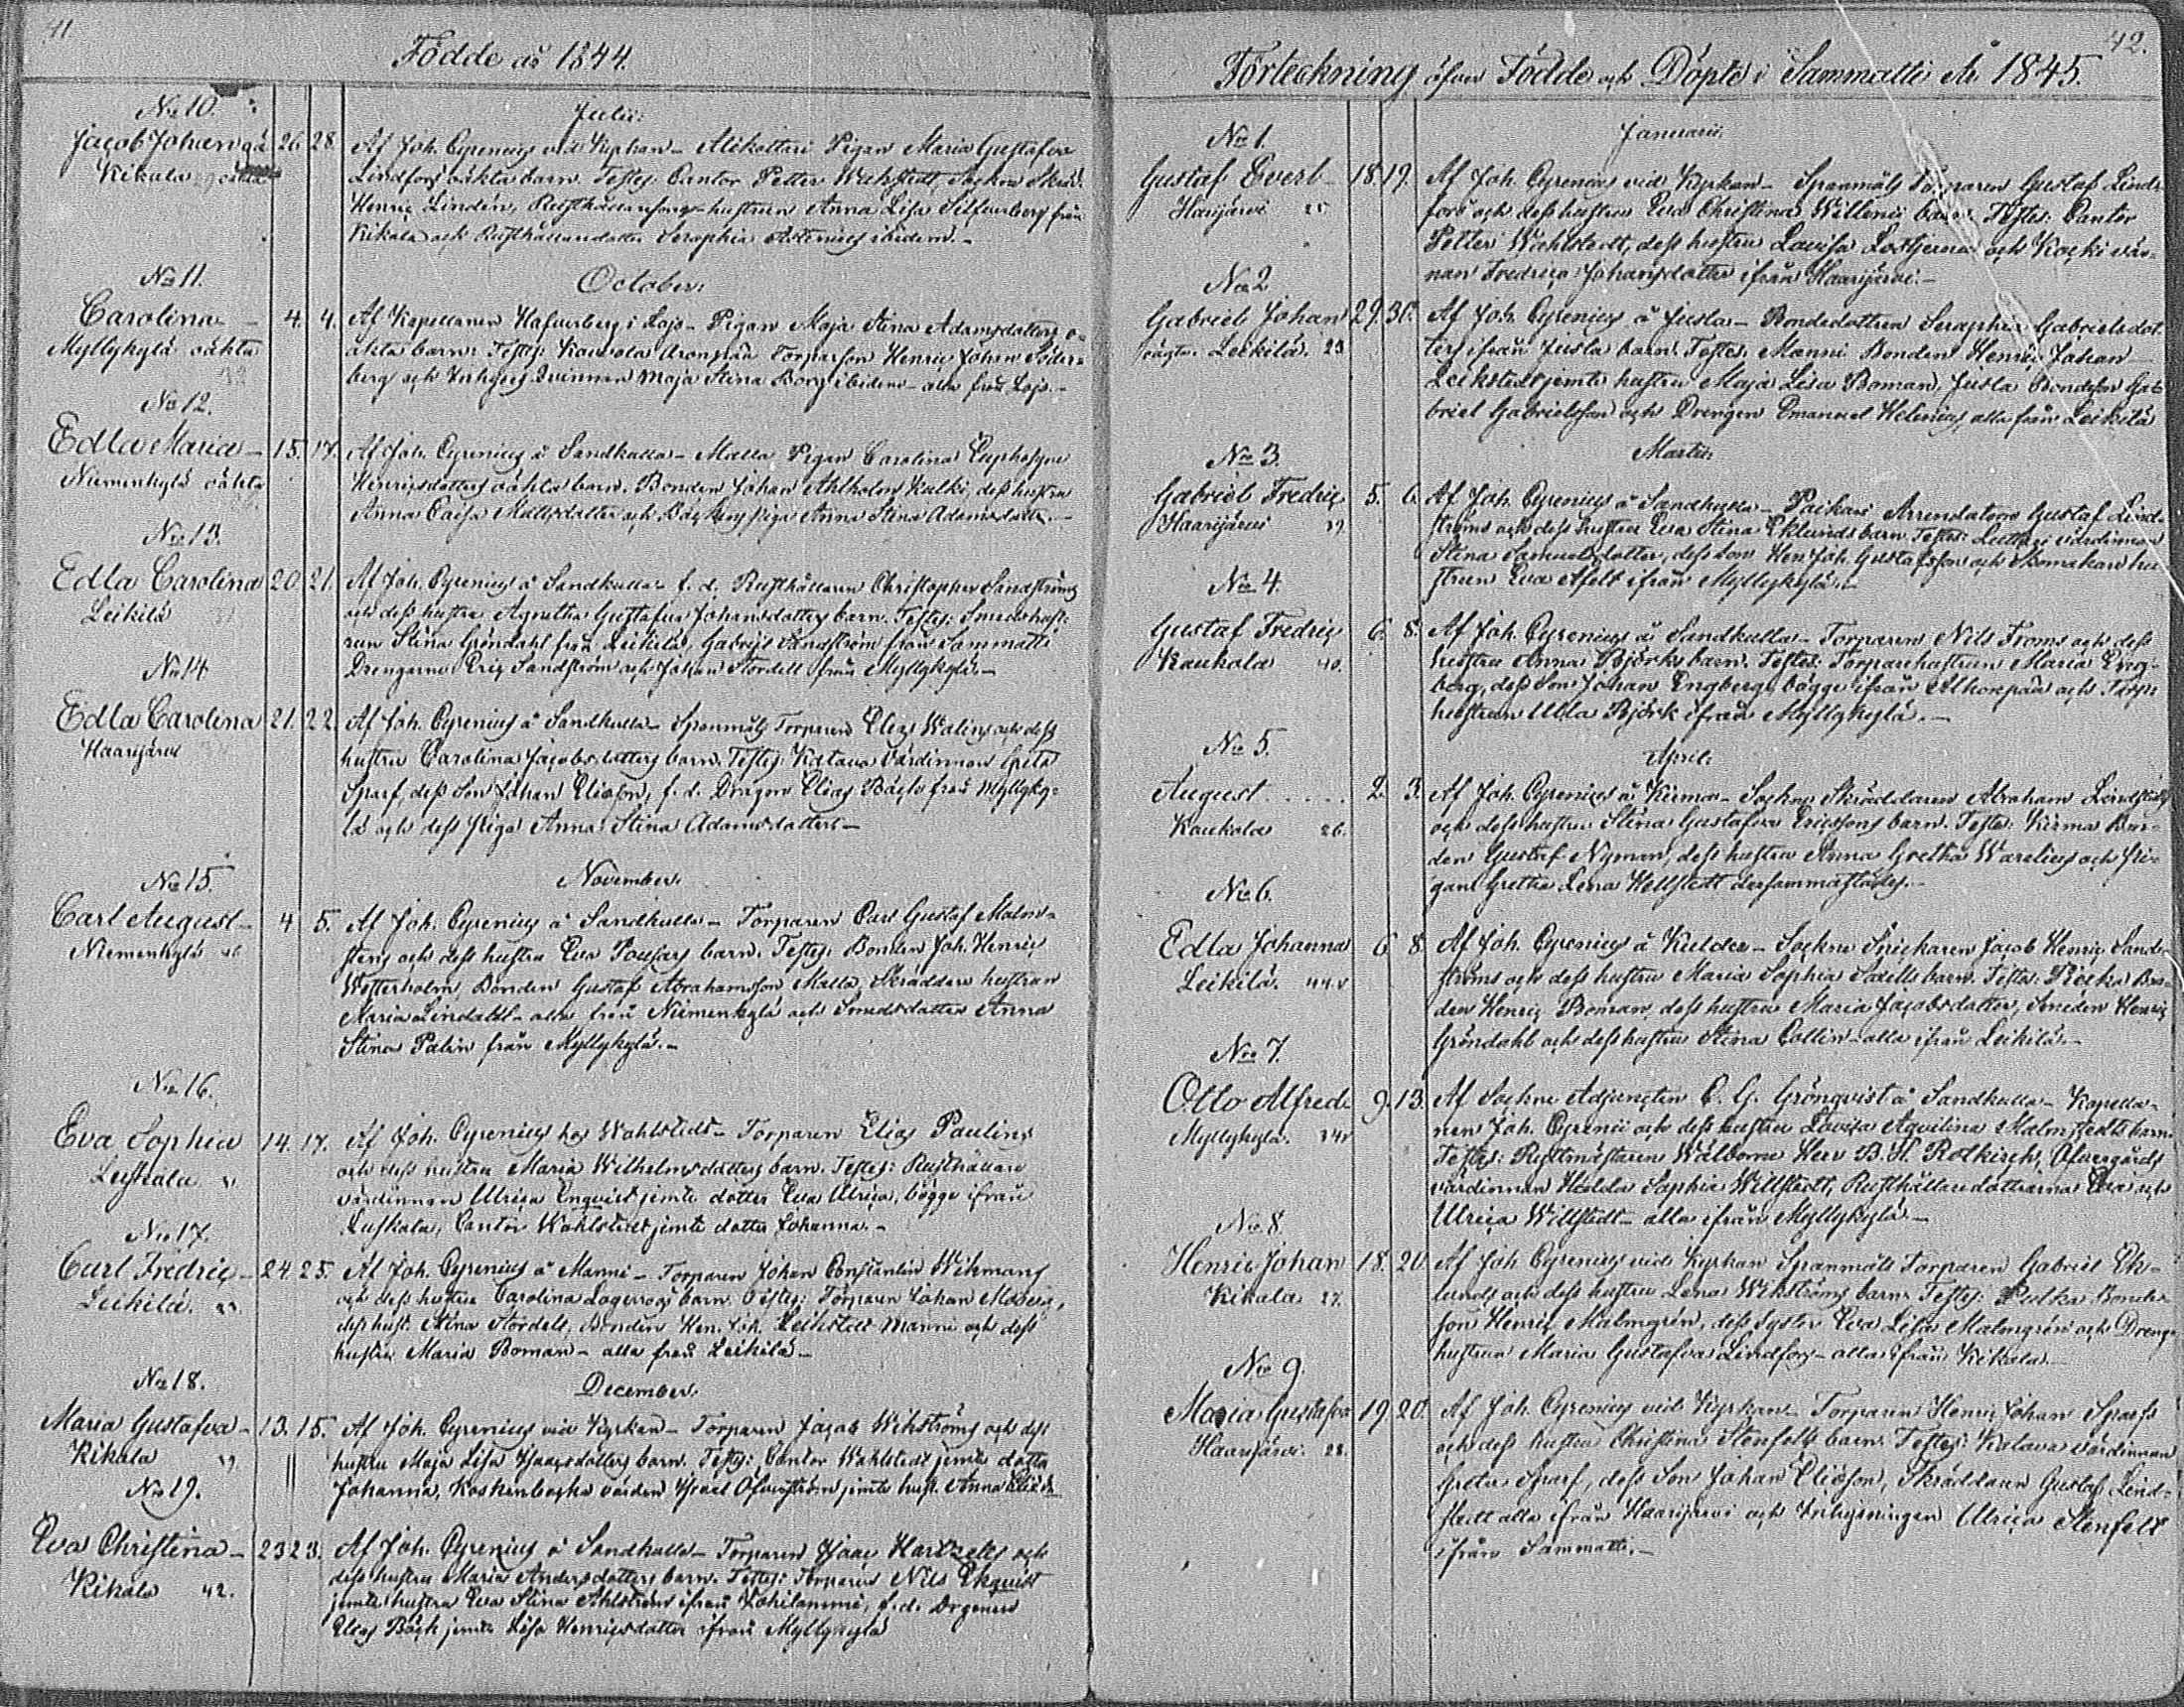 41
Födde år 1844.
Julii:
No 10.
Jacob Johan på 26 28. Af Joh. Cyrenius vid Kyrkan - Alikottari Pigan Maria Gustafva
Kikala oäkta Lindfors oäkta barn. Testes: Cantor Petter Wahlstedt, Sockne Skräd.
Henric Lindén, Rusthållaresons hustrun Anna Lisa Silfverberg från
Kikala och Rusthållaredotter Seraphia ibidem.-
No 11.
October:
Carolina- 4. 4. Af Kapellanen Hafverberg i Lojo - Pigan Maja Stina Adamsdotters o-
Myllykylä oäkta äkta barn: Testes: Torparson Henric Johan Söder-
berg och Inhyses Qvinnan Maja Stina Borg ibidem - alla från Lojo.-
No 12.
Edla Maria- 15. 17. Af Joh. Cyrenius å Sandkulla - Malla Pigan Carolina Euphosyne
Niemenkylä oäkta Henricsdotters oäkta barn. Bonden Johan Ahlholm Kulki, dess hustru
Anna Caisa Mattsdotter och piga Anna Stina Adamsdotter.-
No 13.
Edla Carolina 20. 21. Af Joh. Cyrenius å Sandkulla - f. d. Rusthållaren Christopher Sandströms
Leikilä och dess hustru Agnetha Gustafva Johansdotters barn. Testes: Smedshust-
run Stina Gröndahl från Leikilä, Gabriel Sandström från Sammatti
Drengarne Eric Sandström och Johan Stordell från Myllykylä.-
No 14.
Edla Carolina 21. 22. Af Joh. Cyrenius å Sandkulla - Spanmåls Torparen Elias Walins och dess
Haarijärvi hustru Carolina Jacobsdotters barn. Testes: Katava värdinnan Greta
Sparf, dess Son Johan Eliasson, f. d. Dragon Elias Bäck från Myllyky-
lä och dess piga Anna Stina Adamsdotter.-
No 15.
November.
Carl August- 4 5. Af Joh. Cyrenius å Sandkulla - Torparen Carl Gustaf Malm-
Niemenkylä 26 stens och dess hustru Eva Pousars barn. Testes: Bonden Joh. Henric
Wetterholm, Bonden Gustaf Abrahamsson Malla, Skräddare hustrun
Maria Lindahl - alla från Niemenkylä och Smedsdotter Anna
Stina Palin från Myllykylä.-
No 16.
Eva Sophia 14. 17. Af Joh. Cyrenius hos Wahlstedt - Torparen Elias Paulins
Luskala och dess hustru Maria Wilhelmsdotters barn. Testes: Rusthållare
värdinnan Ulrica Enqvist jemte dotter Eva Ulrica, bägge ifrån
Luskala, Cantor Wahlstedt jemte dotter Johanna.-
No 17.
Carl Fredric- 24. 25. Af Joh. Cyrenius å Manni - Torparen Johan Constantin Wikmans
Leikilä. och dess hustru Carolina Lagerroos barn. Testes: Torparen Johan Moberg,
dess hust. Stina Stordell, Bonden Hen. Joh. Leikstedt Manni och dess
hustru Maria Boman - alla från Leikilä -
No 18.
December.
Maria Gustafva- 13. 15. Af Joh. Cyrenius vid Kyrkan - Torparen Jacob Wikströms och dess
Kikala hustru Maja Lisa Isaacsdotters barn. Testes: Cantor Wahlstedt jemte dotter
Johanna, Israel Öfverström jemte hust. Anna
No 19.
Eva Christina- 23 23. Af Joh. Cyrenius å Sandkulla - Torparen Isaac Hartzells och
Kikala 42. dess hustru Maria Andersdotters barn. Testes: Torparen Nils Ekqvist
jemte hustru Eva Stina Ahlström ifrån Lohilammi, f. d. Dragonen
Elias Bäck jemte Lisa Henricsdotter ifrån Myllykylä
42.
Förteckning öfver Födde och Döpte i Sammatti År 1845.
Januarii:
No 1.
Gustaf Evert- 18. 19. Af Joh. Cyrenius vid Kyrkan - Spanmåls Torparen Gustaf Lind-
Haarijärvi 25 fors och dess hustru Eva Christina Willenii barn. Testes: Cantor
Petter Wahlstedt, dess hustru Lovisa och Kocki vär-
nan Fredrica Johansdotter ifrån Haarijärvi.-
No 2
Gabriel Johan 29. 30. Af Joh. Cyrenius å Jusla - Bondedottren Seraphia Gabrielsdot-
oägta. Leikilä. 23 ters ifrån Jusla barn. Testes: Manni Bonden Henric Johan
Leikstedt jemte hustru Maja Lisa Boman, Jusla Bondeson Ga-
briel Gabrielsson och Drengen Emanuel Helenius, alla från Leikilä
Martii:
No 3.
Gabriel Fredric 5. 6. Af Joh. Cyrenius å Sandkulla - Paikari Arrendatorn Gustaf Lind-
Haarijärvi 19. ströms och dess hustru Eva Stina Eklunds barn. Testes: Luttari värdinnan
Stina Samuelsdotter, dess son Hen. Joh. Gustafsson och Skomakare hu-
strun Eva Asfelt ifrån Myllykylä.-
No 4.
Gustaf Fredric 6. 8. Af Joh. Cyrenius å Sandkulla - Torparen Nils Froms och dess
Kaukola 40. hustru Anna Björks barn. Testes: Torparehustrun Maria Eng-
berg, dess Son Johan Engberg, bägge ifrån Alhonpää och Torp
hustrun Ulla Björk ifrån Myllykylä.-
April:
No 5.
August..... 2. 3. Af Joh. Cyrenius å Kirma - Sockne Skräddaren Abraham Lindstedts
Kaukola 26. och dess hustru Stina Gustafva Ericssons barn. Testes: Kirma Bon-
den Gustaf Nyman, dess hustru Anna Gretha Warelius och pi-
gan Gretha Lena Hellstedt dersammastädes.-
No 6.
Edla Johanna 6 8 Af Joh. Cyrenius å Kulder - Sockne Snickaren Jacob Henric Sand-
Leikilä. 44. ströms och dess hustru Maria Sophia Saxells barn. Testes: Bon-
den Henric Boman, dess hustru Maria Jacobsdotter, Smeden Henric
Gröndahl och dess hustru Stina Collin - alla ifrån Leikilä.-
No 7.
Otto Alfred 9. 13. Af Sockne Adjuncten C. G. Grönqvist å Sandkulla - Kapella-
Myllykylä. 34 nen Joh. Cyrenii och dess hustru Lovisa Aqvilina Malmstedts barn.
Testes: Ryttmästaren Wälborne Herr B. H. Rotkirch, Öfvergårds
värdinnan Hedda Sophia Willstedt, Rusthållaredöttrarna Eva och
Ulrica Willstedt - alla ifrån Myllykylä -
No 8.
Henric Johan 18. 20. Af Joh. Cyrenius vid Kyrkan Spanmåls Torparen Gabriel Ek-
Kikala 27. lunds och dess hustru Lena Wikströms barn. Testes: Pulka Bonde-
son Henric Malmgrén, dess syster Eva Lisa Malmgrén och Drengs
hustrun Maria Gustafva Lindfors - alla ifrån Kikala.-
No 9.
Maria Gustafva 19. 20. Af Joh. Cyrenius vid Kyrkan - Torparen Henric Johan Sparfs
Haarijärvi 28. och dess hustru Christina Stenfelts barn. Testes: Katava värdinnan
Greta Sparf, dess Son Johan Eliasson, Skräddaren Gustaf Lind-
stedt alla ifrån Haarijärvi och Inhysningen Ulrica Stenfelt
ifrån Sammatti.-